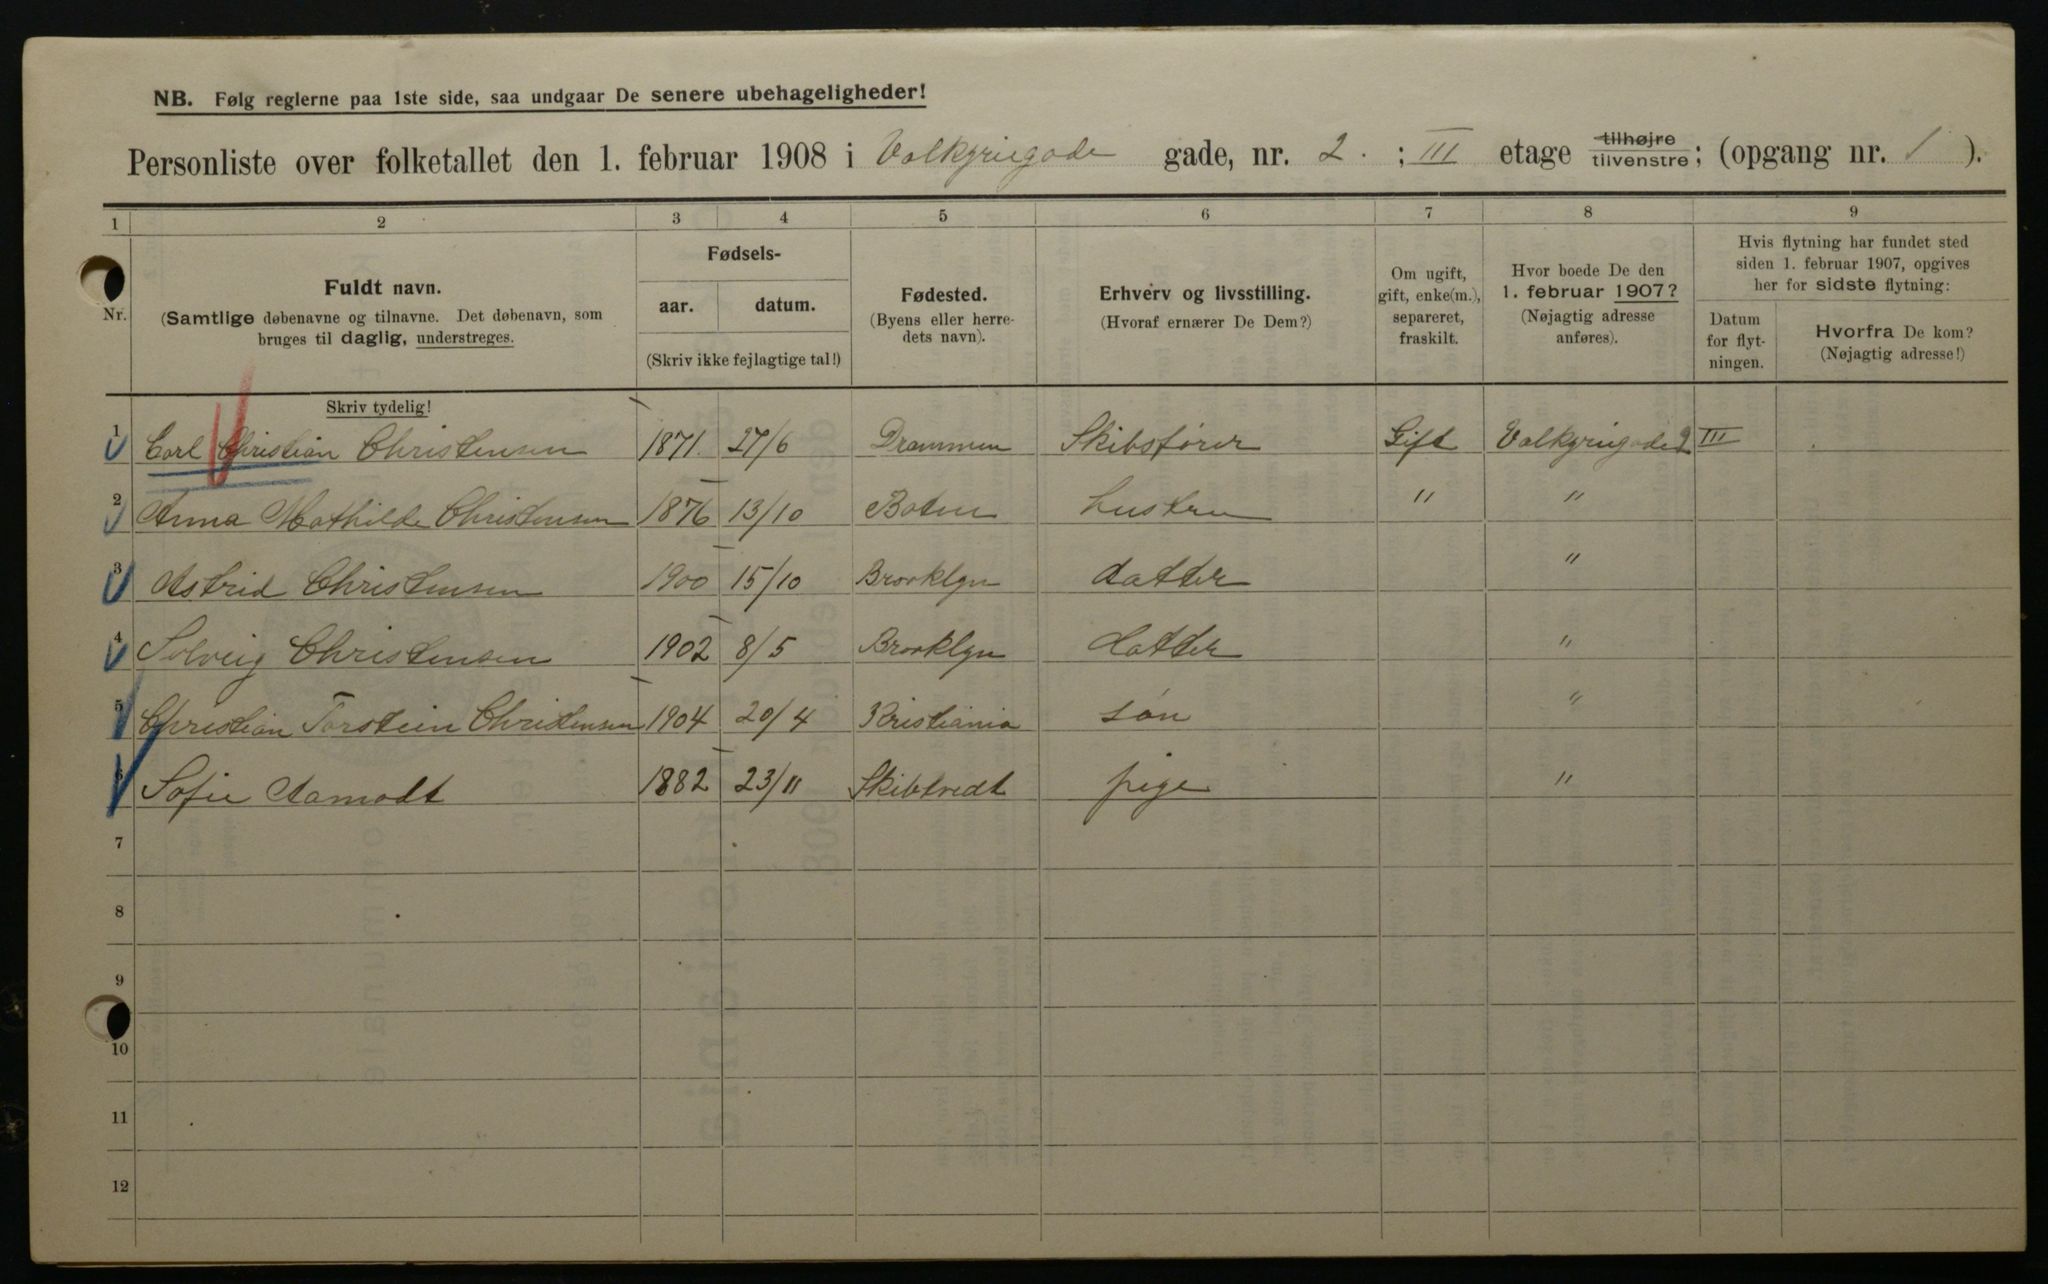 NB. Følg reglerne paa 1ste side, saa undgaar De senere ubehageligheder!
Personliste over folketallet den 1. februar 1908 i Valkyriegade gade, nr. 2. ; III etage tilhøjre tilvenstre; (opgang nr. 1 ).
1 2 3 4 5 6 7 8 9
Nr.
Fuldt navn.
(Samtlige døbenavne og tilnavne. Det døbenavn, som
bruges til daglig, understreges.
Skriv tydelig!
Fødsels-
aar. datum.
(Skriv ikke fejlagtige tal!)
Fødested.
(Byens eller herre-
dets navn).
Erhverv og livsstilling.
(Hvoraf ernærer De Dem?)
Om ugift,
gift, enke(m.),
separeret,
fraskilt.
Hvor boede De den
1. februar 1907?
(Nøjagtig adresse
anføres).
Hvis flytning har fundet sted
siden 1. februar 1907, opgives
her for sidste flytning:
Datum
for flyt-
ningen.
Hvorfra De kom?
(Nøjagtig adresse!)
1 Carl Christian Christensen 1871. 27/6 Drammen Skibsfører Gift Valkyriegade 2 III
2 Anna Mathilde Christensen 1876 13/10 hustru " "
3 Astrid Christensen 1900 15/10 Brooklyn datter "
4 Solveig Christensen 1902 8/5 Brooklyn datter "
5 Christian Torstein Christensen 1904 20/4 Kristiania søn "
6 Sofie Aamodt 1882 23/11 Skibtvedt pige "
7
8
9
10
11
12